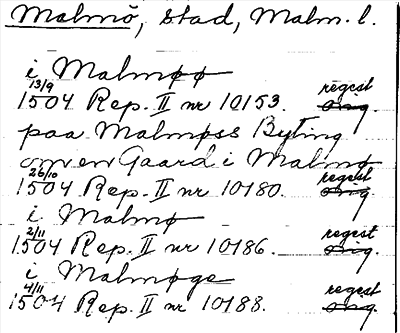 Malmö, stad, Malm. l.
i Malmøø
13/9 1504 Rep. II nr 10153. regest orig.
paa Malmøss Byting
om en Gaard i Malmø
26/10 1504 Rep. II nr 10180. regest orig.
i Malmø
2/11 1504 Rep. II nr 10186. regest orig.
i Malmøge
4/11 1504 Rep. II nr 10188. regest orig.